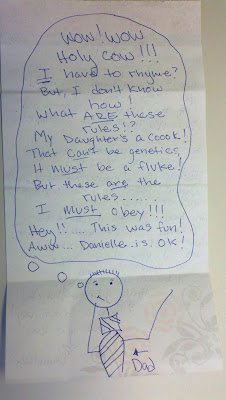 Wow! Wow
Holy Cow!!!
I have to rhyme?
But, I don't know
how!
What ARE these
rules!?
My Daughter's a coook!
That can't be genetics,
It must be a fluke!
But these are the
rules.....
I must obey!!!
Hey!!.... This was fun!
Aww... Danielle is OK!
Dad